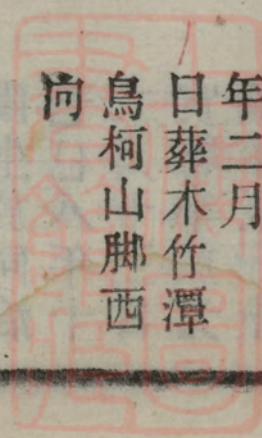 年二月
日葬木竹潭
鳥柯山脚西
向